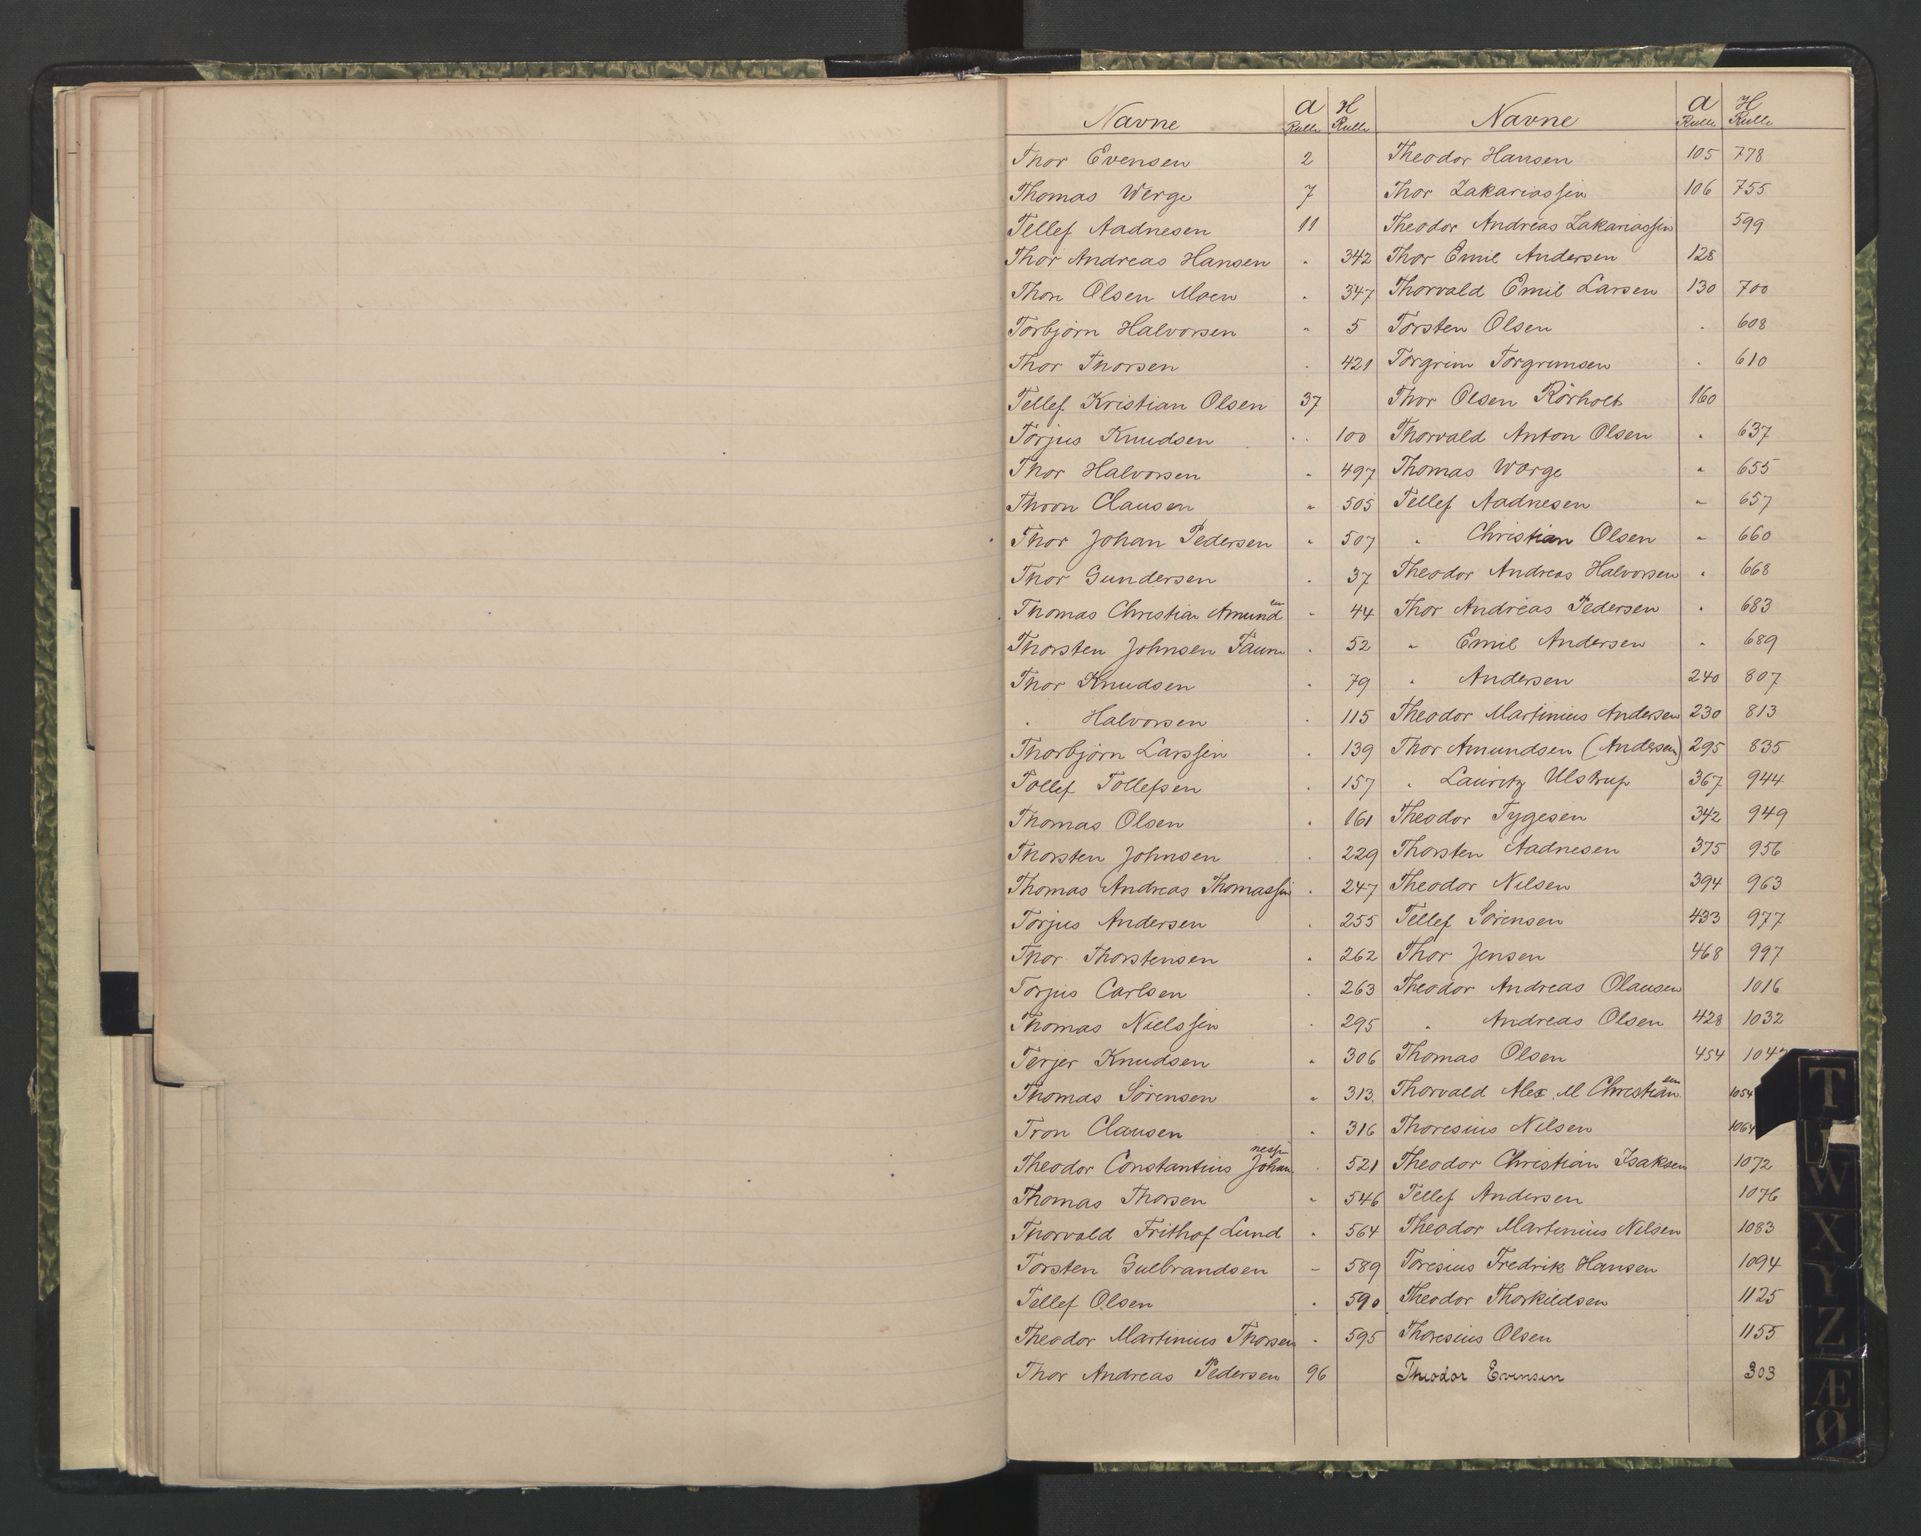 Navne a Rulle H Rulle Navne a Rulle H Rulle
Thor Evensen 2 Theodor Hansen 105 778
Thomas Werge 7 Thor Zakariassen 106 755
Tellef Aadnesen 11 Theodor Andreas Zakariassen 599
Thor Andreas Hansen " 342 Thor Emil Andersen 128
Thor Olsen Moen " 347 Thorvald Emil Larsen 130 700
Torbjørn Halvorsen " 5 Torsten Olsen " 608
Thor Thorsen " 421 Torgrim Torgrimsen " 610
Tellef Kristian Olsen 37 Thor Olsen Rørholt 160
Torjus Knudsen " 100 Thorvald Anton Olsen " 637
Thor Halvorsen " 497 Thomas Worge " 655
Thron Clausen " 505 Tellef Aadnesen " 657
Thor Johan Pedersen " 507 " Christian Olsen " 660
Thor Gundersen " 37 Theodor Andreas Halvorsen " 668
Thomas Christian Amunden " 44 Thor Andreas Pedersen " 683
Thorsten Johnsen " 52 " Emil Andersen " 689
Thor Knudsen " 79 " Andersen 240 807
" Halvorsen " 115 Theodor Martinius Andersen 230 813
Thorbjørn Larssen " 139 Thor Amundsen (Andersen) 295 835
Tollef Tollefsen " 157 " Lauritz Ulstrup 367 944
Thomas Olsen " 161 Theodor Tygesen 342 949
Thorsten Johnsen " 229 Thorsten Aadnesen 375 956
Thomas Andreas Thomassen " 247 Theodor Nilsen 394 963
Torjus Andersen " 255 Tellef Sørensen 433 977
Thor Thorstensen " 262 Thor Jensen 468 997
Torjus Carlsen " 263 Theodor Andreas Olausen 1016
Thomas Nielssen " 295 " Andreas Olsen 428 1032
Terjer Knudsen " 306 Thomas Olsen 454 1042
Thomas Sørensen " 313 Thorvald Alex. M Christiansen 1054
Tron Clausen " 316 Thoresius Nilsen 1064
Theodor Constantius Johannessen " 521 Theodor Christian Isaksen 1072
Thomas Thorsen " 546 Tellef Andersen 1076
Thorvald Frithof Lund " 564 Theodor Martinius Nilsen 1083
Torsten Gulbrandsen " 589 Toresius Fredrik Hansen 1094
Tellef Olsen " 590 Theodor Thorkildsen 1125
Theodor Martinius Thorsen " 595 Thoresius Olsen 1155
Thor Andreas Pedersen 96 Theodor Evensen 303
T
W
X
Y
Z
Æ
Ø